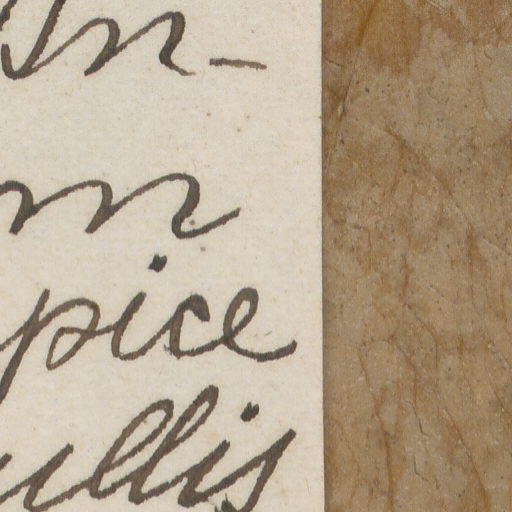 In-
m
pice
ullis